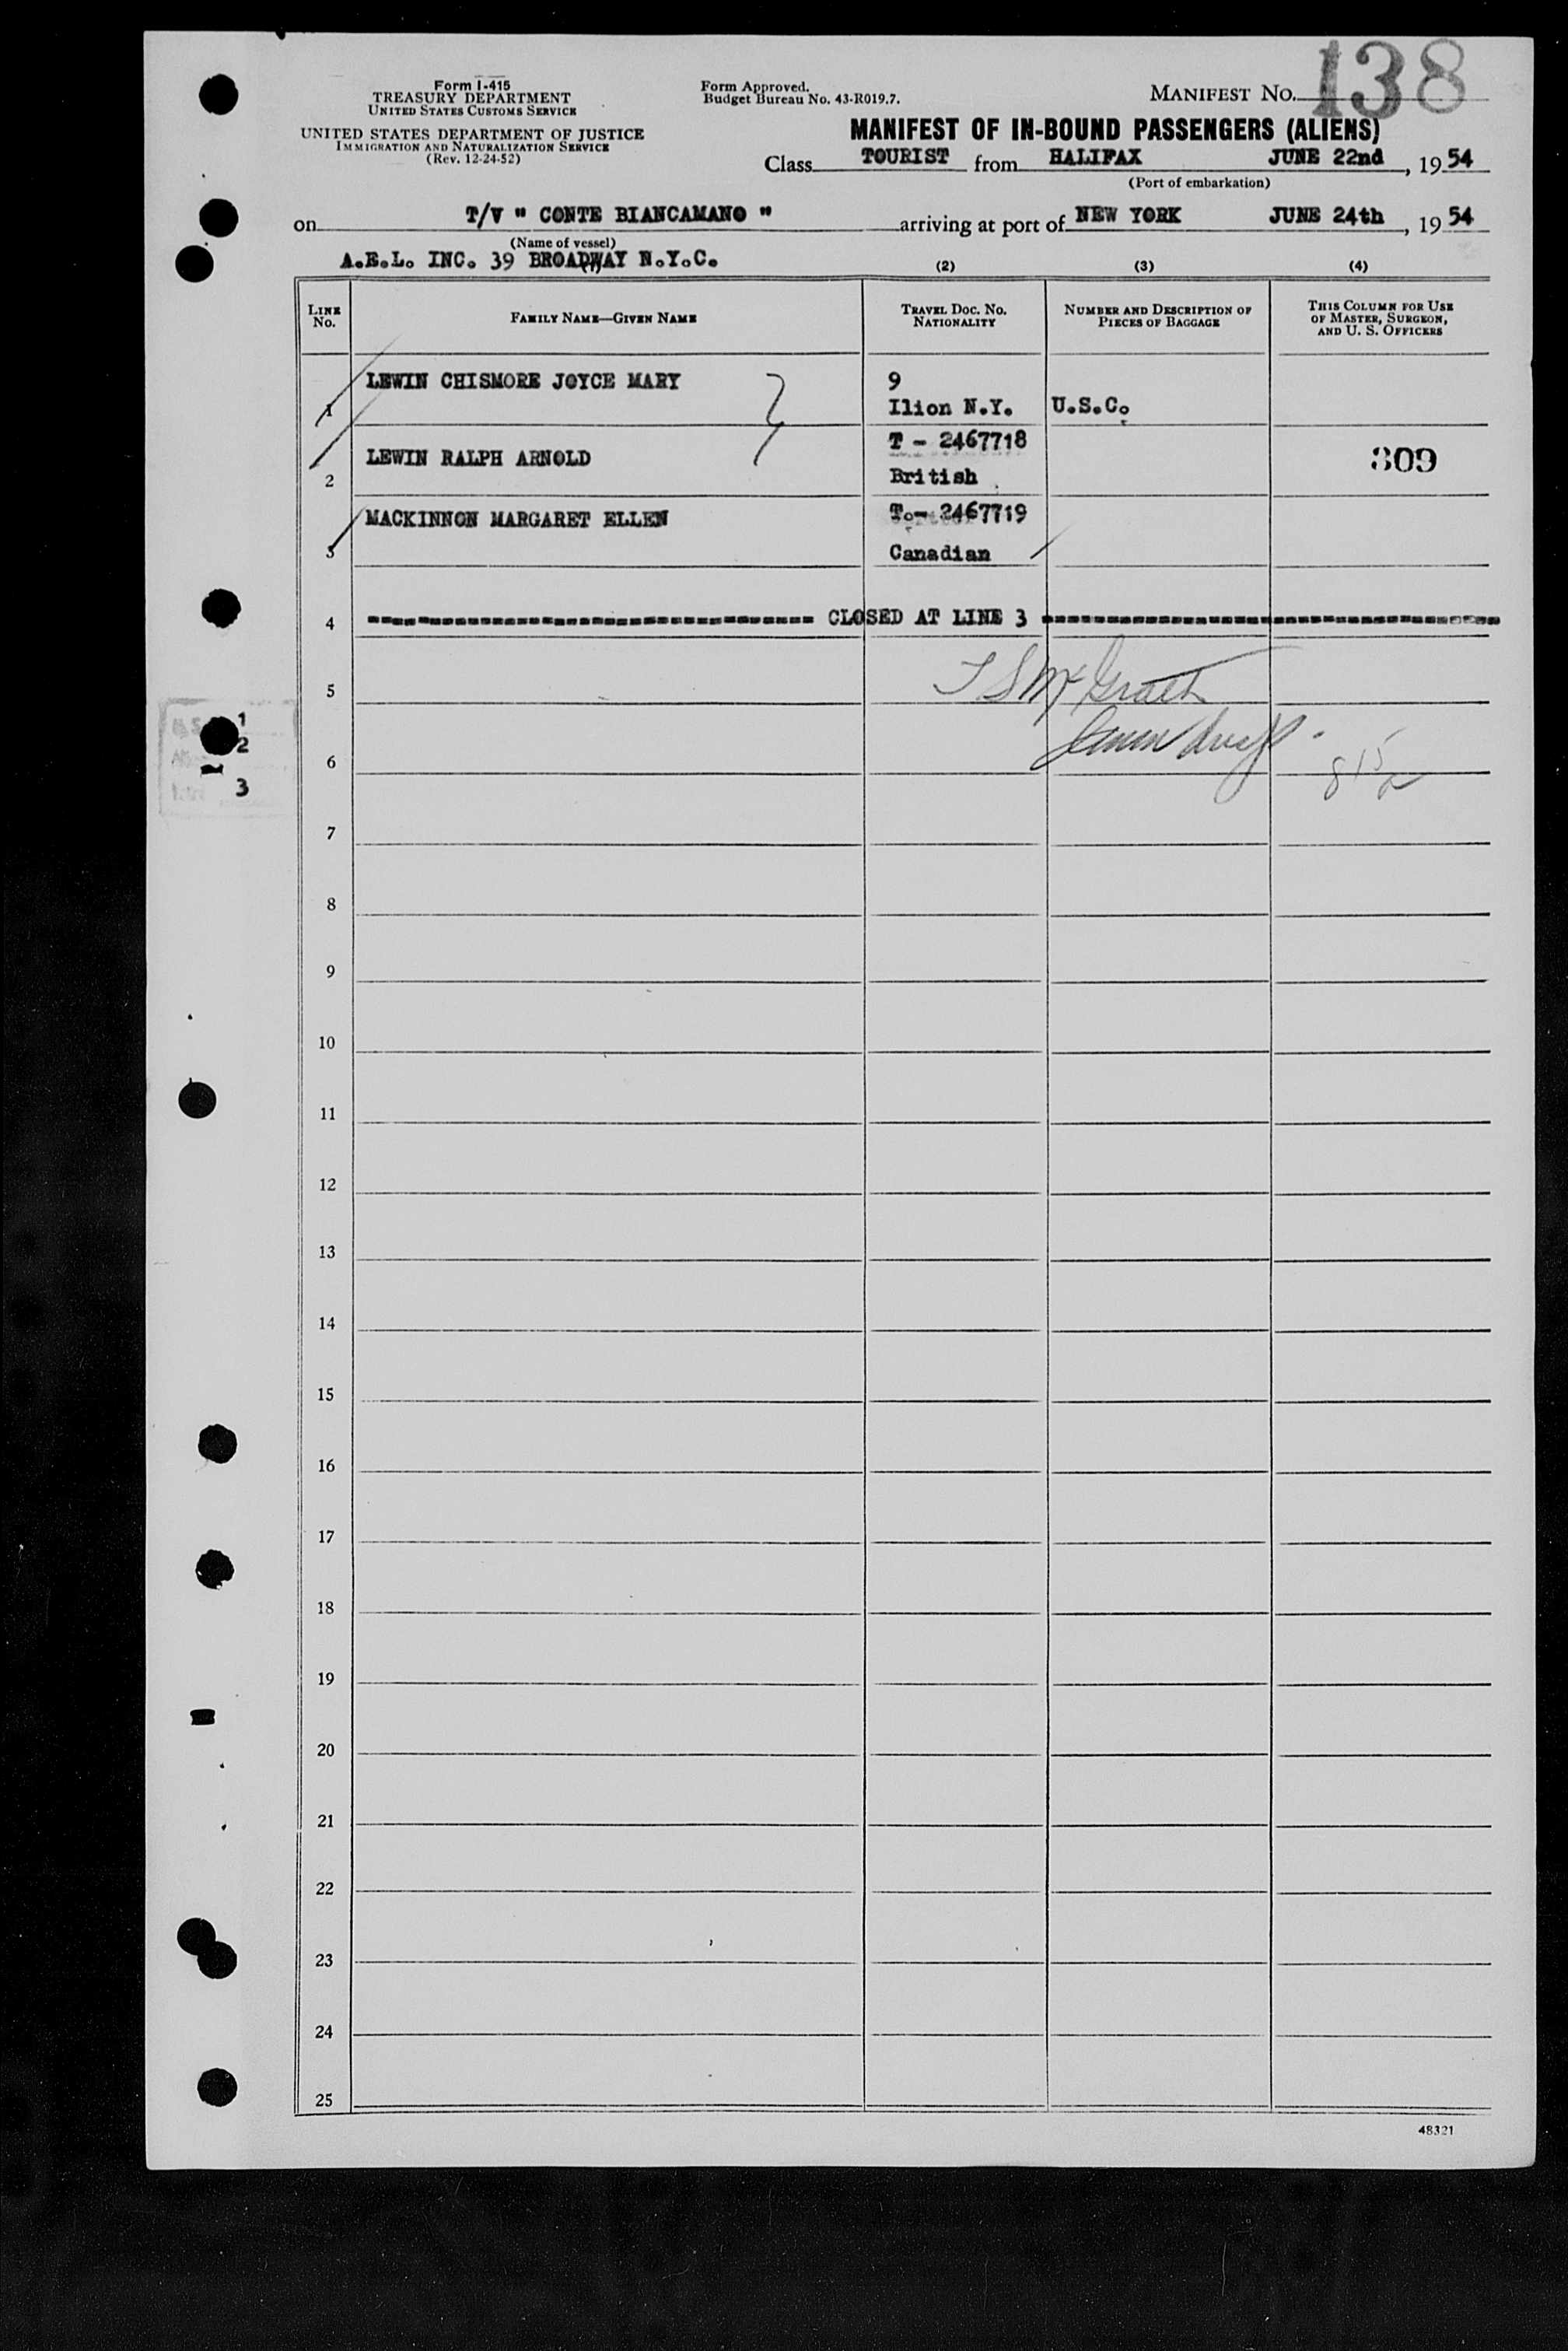 138
Form I-415
TREASURY DEPARTMENT
UNITED STATES CUSTOMS SERVICE
UNITED STATES DEPARTMENT OF JUSTICE
IMMIGRATION AND NATURALIZATION SERVICE
(Rev. 12-24-52)
Form Approved.
Budget Bureau No. 43-R019.7.
MANIFEST NO.
MANIFEST OF IN-BOUND PASSENGERS (ALIENS)
Class TOURIST from HALIFAX JUNE 22nd, 19 54
(Port of embarkation)
on T/V " CONTE BIANCAMANO " arriving at port of NEW YORK JUNE 24th, 19 54
(Name of vessel)
A.E.L. INC. 39 BROADWAY N.Y.C.
(2) (3) (4)
LINE No. FAMILY NAME—GIVEN NAME TRAVEL DOC. NO. NATIONALITY NUMBER AND DESCRIPTION OF PIECES OF BAGGAGE THIS COLUMN FOR USE OF MASTER, SURGEON, AND U. S. OFFICERS
LEWIN CHISMORE JOYCE MARY 9
1 Ilion N.Y. U.S.C.
T - 2467718
LEWIN RALPH ARNOLD 309
2 British
MACKINNON MARGARET ELLEN T.- 2467719
3 Canadian
4 CLOSED AT LINE 3
5 T S McGrath
1
2
6
3
815
7
8
9
10
11
12
13
14
15
16
17
18
19
20
21
22
23
24
25
48321